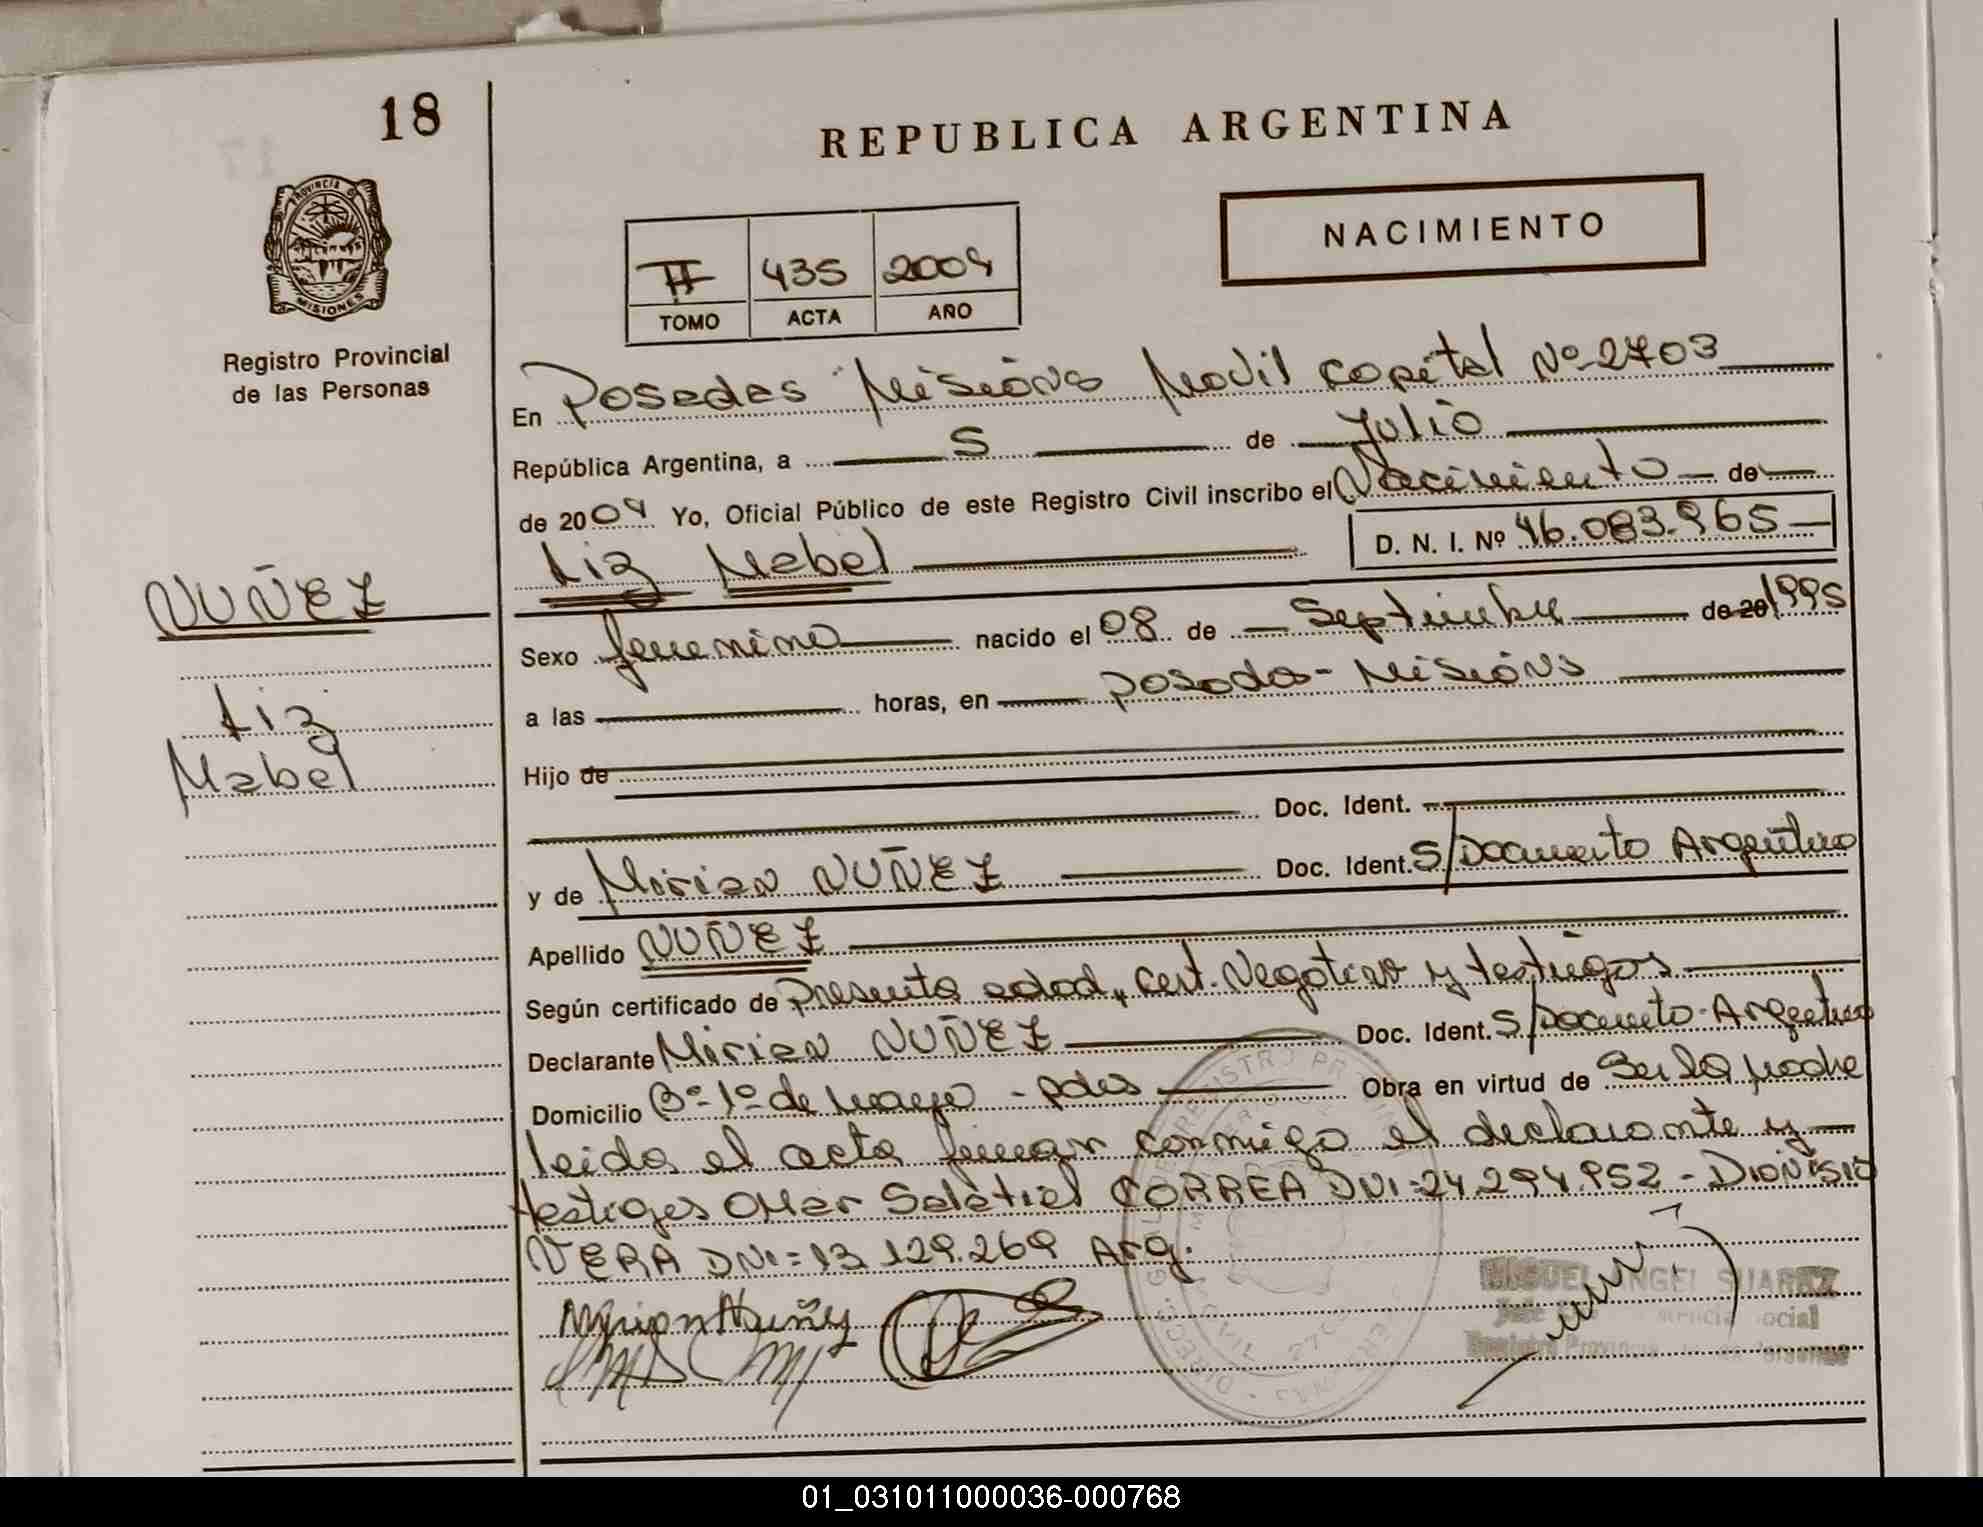 18
REPUBLICA ARGENTINA
PROVINCIA DE
MISIONES
Registro Provincial
de las Personas
NACIMIENTO
II 435 2004
TOMO ACTA AÑO
En Posadas Misiones Movil Capital Nº 2703
República Argentina, a 5 de Julio
de 2004 Yo, Oficial Público de este Registro Civil inscribo el Nacimiento de
Liz Mabel D. N. I. Nº 46.083.965
NUÑEZ
Liz
Mabel
Sexo femenino nacido el 08 de Septiembre de 20 1995
a las horas, en Posadas - Misiones
Hijo de
Doc. Ident.
y de Mirian NUÑEZ Doc. Ident. S/Documento Argentino
Apellido NUÑEZ
Según certificado de Presunta edad, Cert. Negativo y testigos
Declarante Mirian NUÑEZ Doc. Ident. S/Documento Argentino
Domicilio Bº 1º de Mayo - Pdas Obra en virtud de Ser la Madre
leida el acta firman conmigo el declarante y
testigos Omar Salatiel CORREA DNI: 24.294.952 - DIONISIO
VERA DNI: 13.129.269 Arg.
Mirian Nuñez
MIGUEL ANGEL SUAREZ
01_031011000036-000768